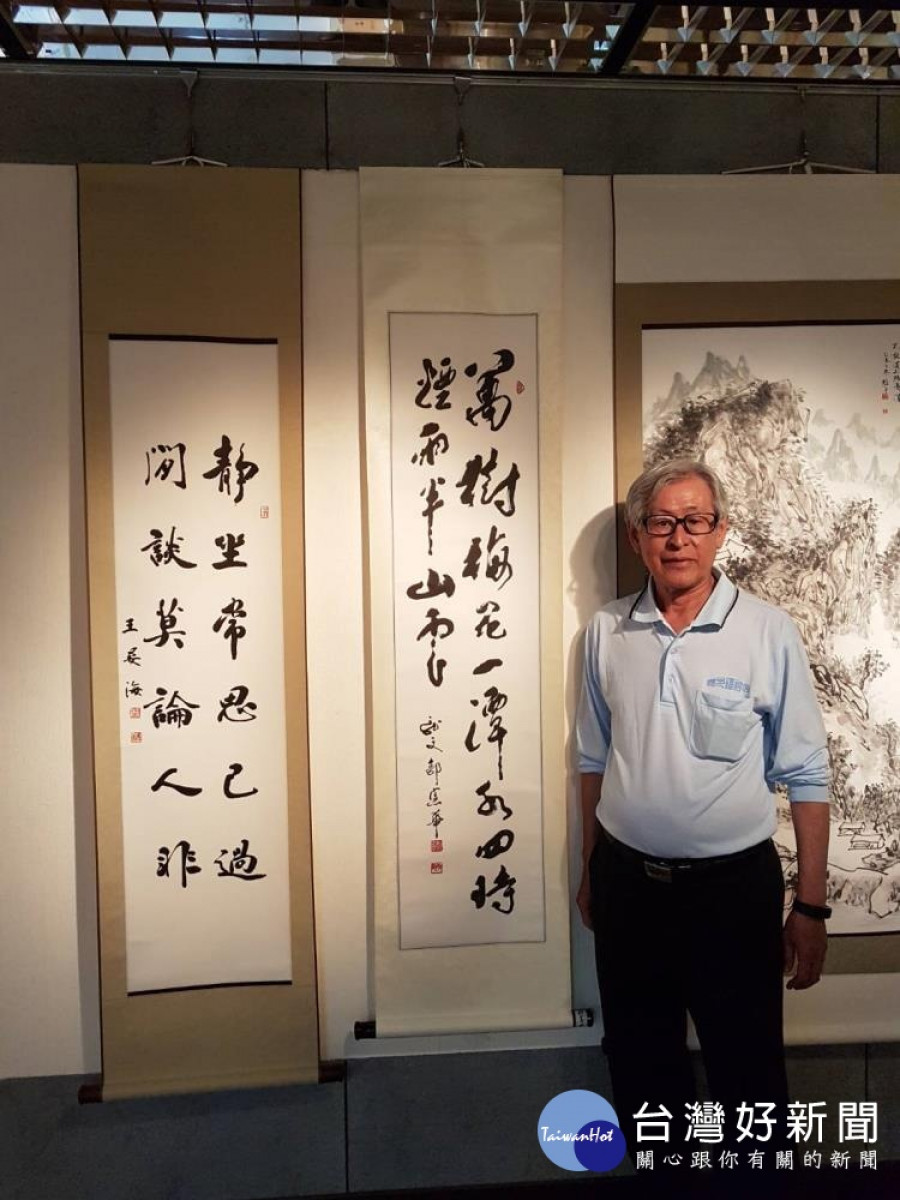 靜坐常思己過
閒談莫論人非
王展海
萬樹梅花一潭水四時
煙雨半山雲
台灣好新聞
TaiwanHot
關心跟你有關的新聞